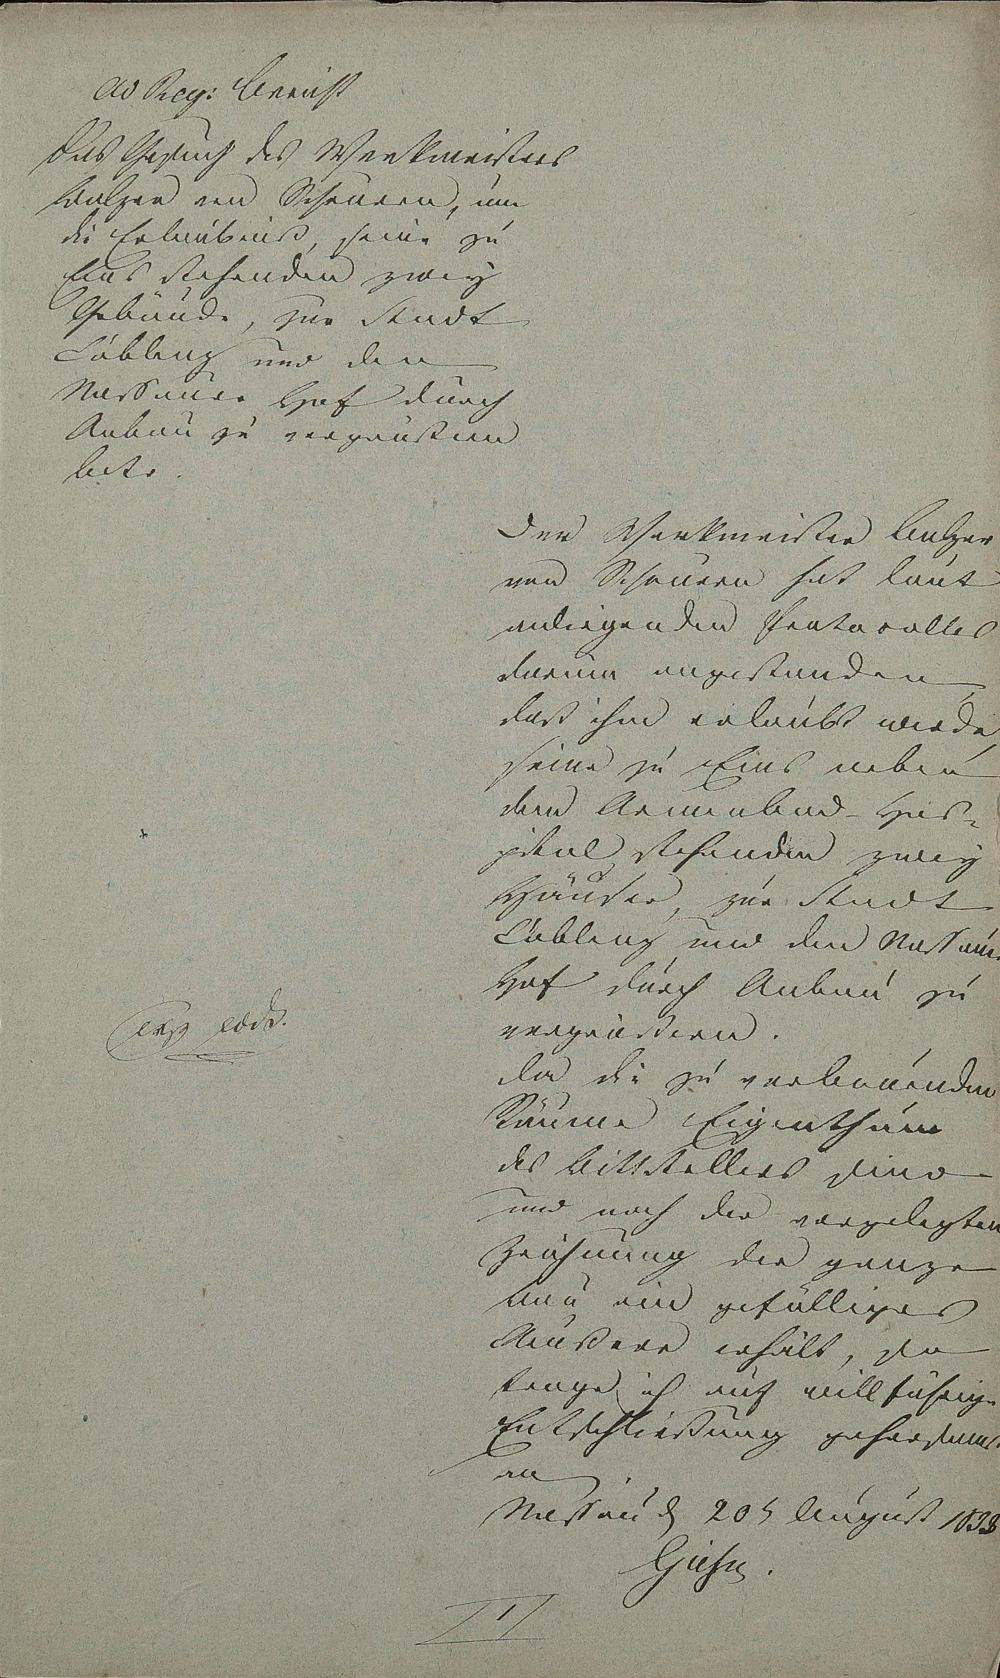 ad Reg: Bericht
Das Gesuch des Werkmeisters
Balzer von Scheuern, um
die Erlaubniß, seine zu
Ems stehenden zwey
Gebäude, zur Stadt
Coblenz und den
Nassauer Hof durch
Anbau zu vergrößern
betr.
Der Werkmeister Balzer
von Scheuern hat laut
anliegenden Protocolles
darum angestanden
daß ihm erlaubt werde,
seine zu Ems neben
dem Armenbad-Hos-
pital stehenden zwey
Häuser, zur Stadt
Coblenz und den Nassauer
Hof durch Anbau zu
vergrößern.
Da die zu verbauenden
Räume Eigenthum
des Bittstellers sind
und nach der vorgelegten
Zeichnung der ganze
Bau ein gefälliges
Äußere erhält, so
trage ich auf willfährige
Entschließung gehorsamst
an
Nassau d 20t August 183